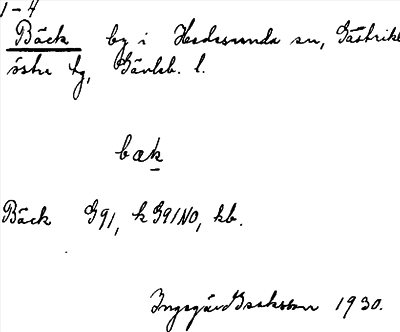 1-4
Bäck by i Hedesunda sn, Gästrikl
östra tg, Gävleb. l.
bæk
Bäck G91, k G91NO, kb.
Ingegärd Isaksson 1930.